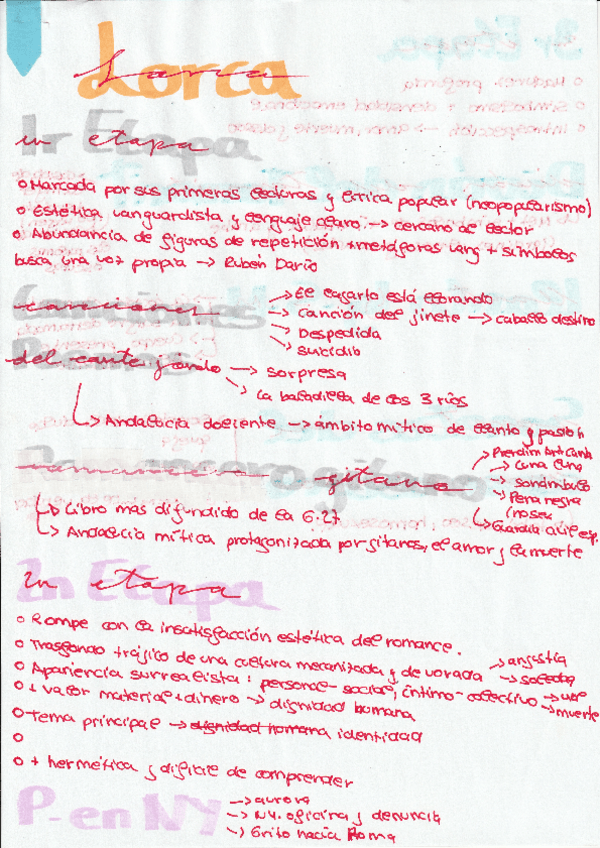 Lorca
1r Etapa
o Marcada por sus primeras lecturas y lírica popular (neopopularismo)
o Estética vanguardista y lenguaje claro → cercano al lector
o Abundancia de figuras de repetición + metáforas vang + símbolos
busca una voz propia → Rubén Darío
Canciones
→ El lagarto está llorando
→ Canción del jinete → caballo destino
→ Despedida
→ suicidio
del cante jondo → sorpresa
→ La baladilla de los 3 ríos
→ Andalucía doliente → ámbito mítico de llanto y pasión
Romancero gitano
→ Prendim Ant Camb
→ Luna luna
→ sonámbulo
→ Pena negra
→ Guardia civil esp.
→ Libro más difundido de la G.27
→ Andalucía mítica protagonizada por gitanos, el amor y la muerte
2n Etapa
o Rompe con la insatisfacción estética del romance.
o Trasfondo trágico de una cultura mecanizada y devorada → angustia
→ soledad
o Apariencia surrealista: personal-social, íntimo-colectivo
→ muerte
o + valor material + dinero → dignidad humana
o Tema principal → dignidad humana identidad
o
o + hermética y difícil de comprender
P. en NY
→ aurora
→ NY. oficina y denuncia
→ Grito hacia Roma